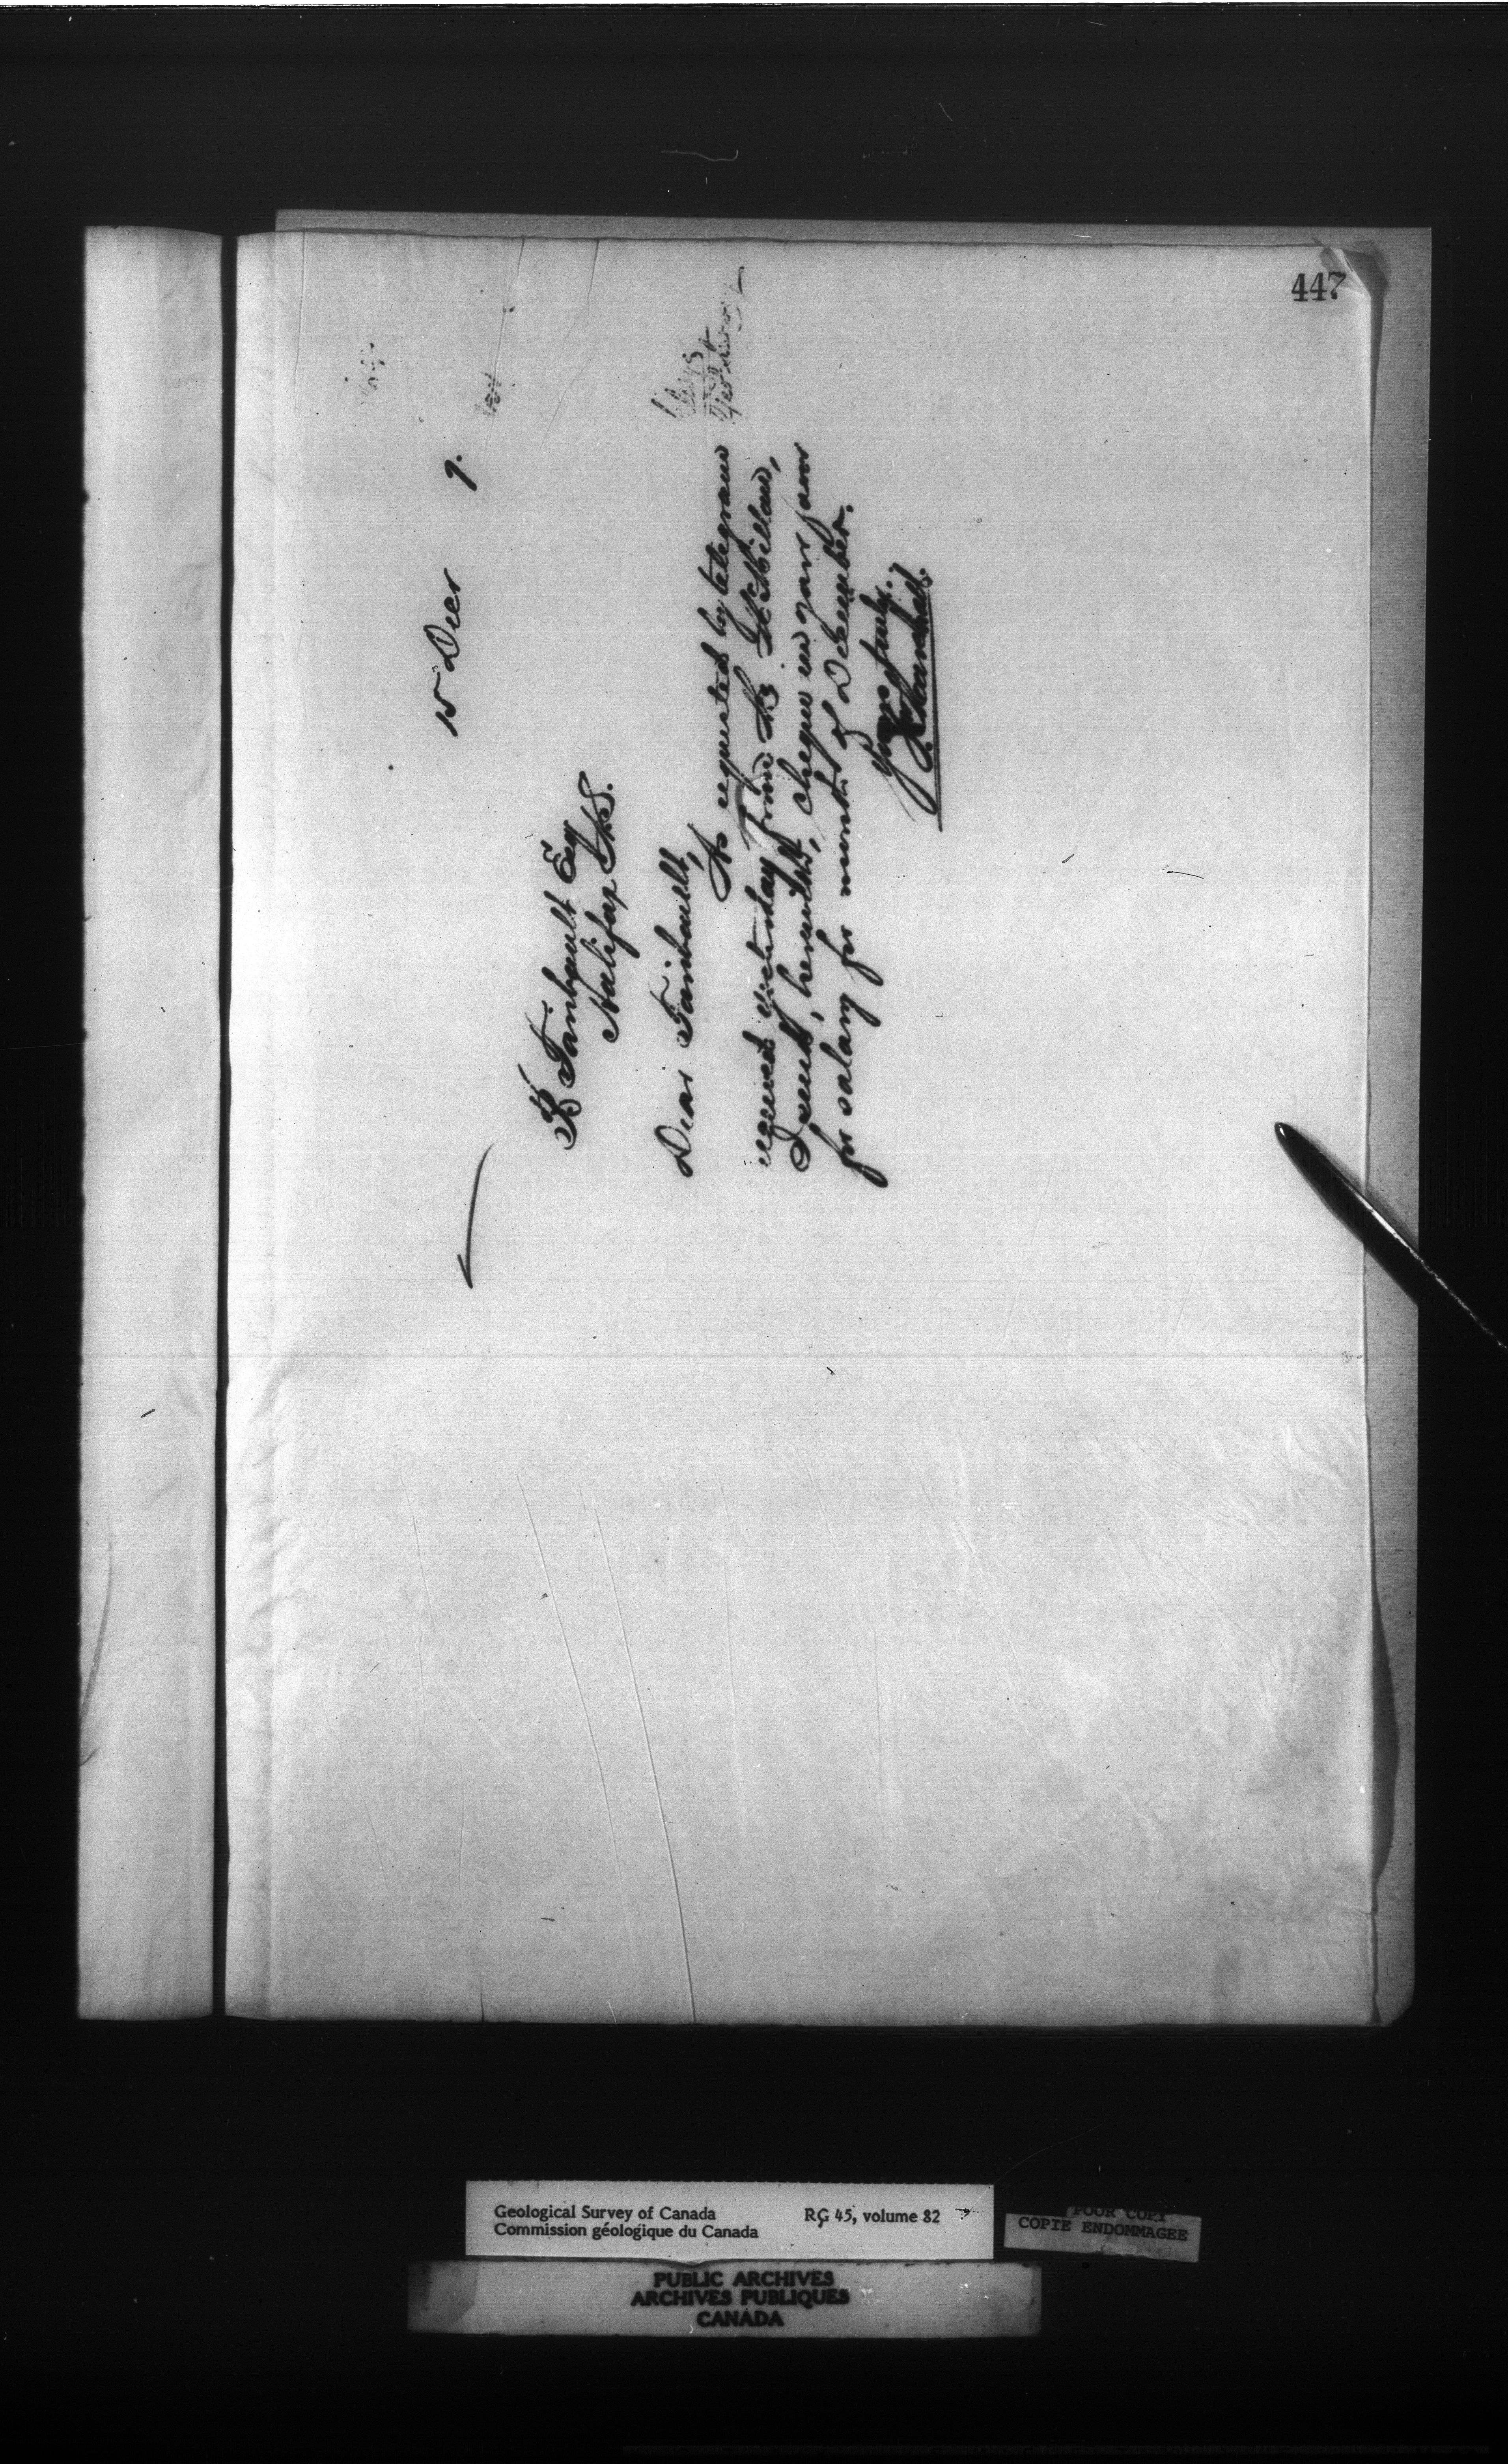 447
15 Decr 9.
Faribault Esq
Halifax N.S.
Dear Faribault,
As requested by telegram
received yesterday from Mr McMillan,
I send, herewith, cheque in your favor
for salary for month of December.
Yours truly,
J Marshall.
Geological Survey of Canada RG 45, volume 82
Commission géologique du Canada
POOR COPY
COPIE ENDOMMAGEE
PUBLIC ARCHIVES
ARCHIVES PUBLIQUES
CANADA